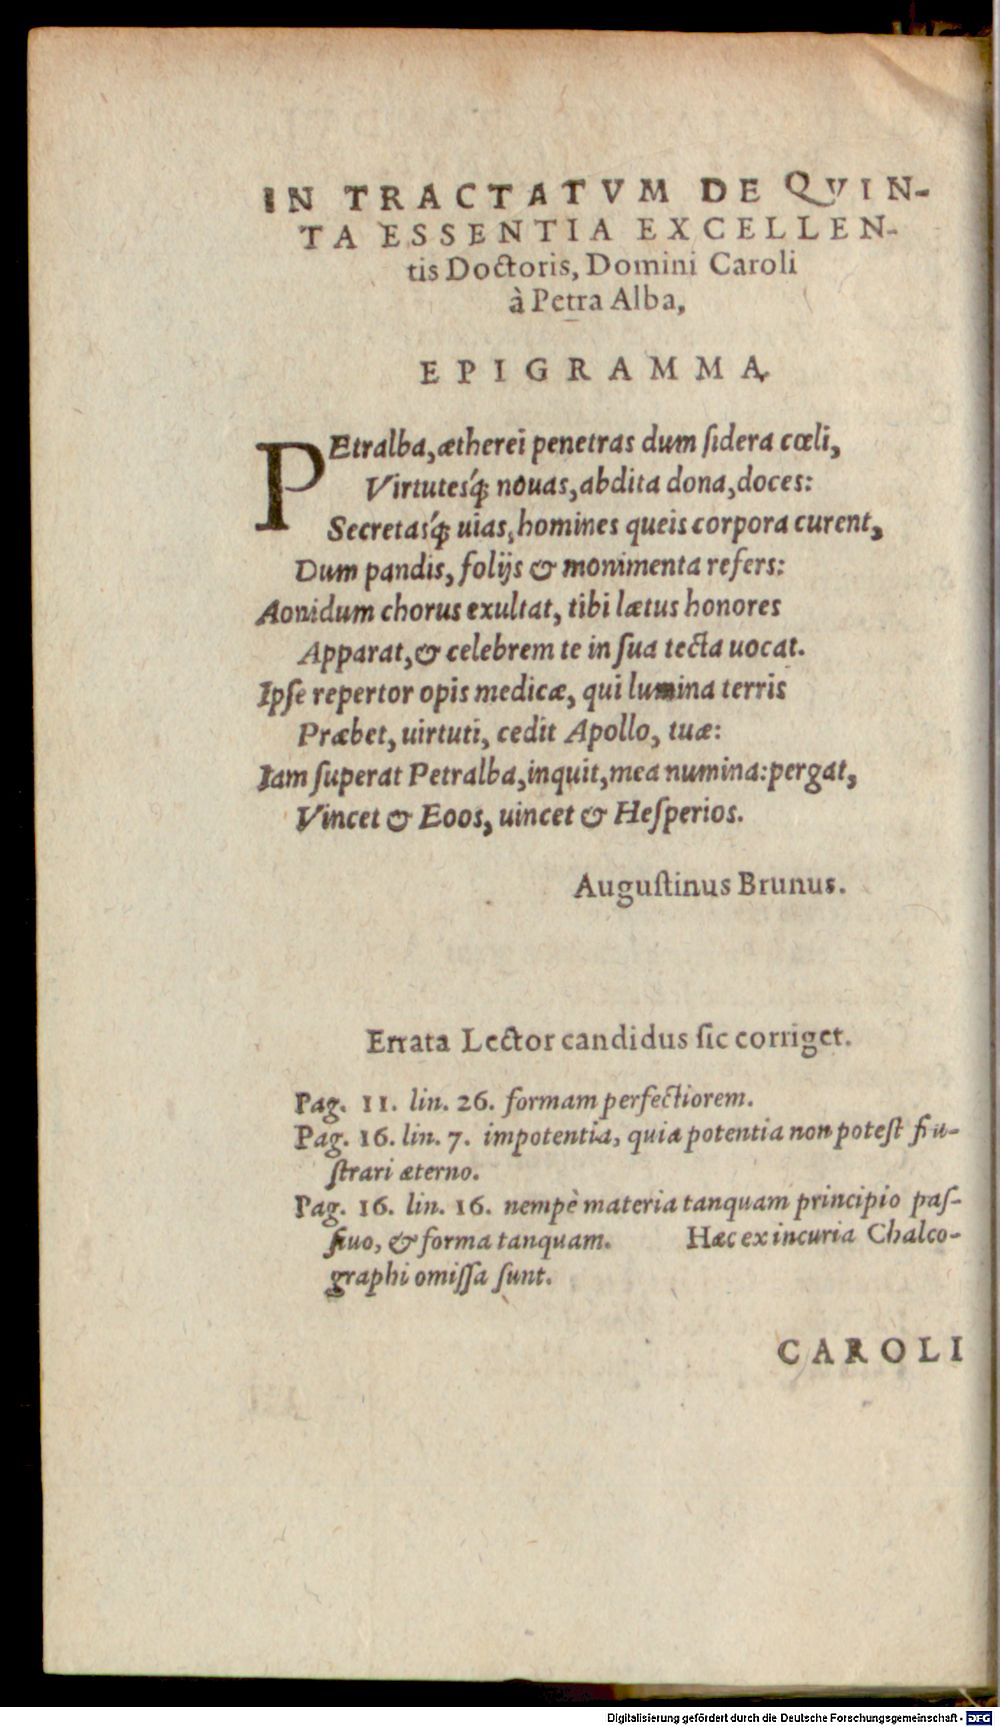 IN TRACTATVM DE QVIN-
TA ESSENTIA EXCELLEN-
tis Doctoris, Domini Caroli
à Petra Alba,
EPIGRAMMA
PEtralba, ætherei penetras dum ſidera cœli,
Virtuteſq́; nouas, abdita dona, doces:
Secretasq́; uias, homines queis corpora curent,
Dum pandis, folijs & monimenta refers:
Aonidum chorus exultat, tibi lætus honores
Apparat, & celebrem te in ſua tecta uocat.
Ipſe repertor opis medicæ, qui lumina terris
Præbet, uirtuti, cedit Apollo, tuæ:
Iam ſuperat Petralba, inquit, mea numina: pergat,
Vincet & Eoos, uincet & Heſperios.
Auguſtinus Brunus.
Errata Lector candidus ſic corriget.
Pag. 11. lin. 26. formam perfectiorem.
Pag. 16. lin. 7. impotentia, quia potentia non poteſt fru-
ſtrari æterno.
Pag. 16. lin. 16. nempè materia tanquam principio paſ-
ſiuo, & forma tanquam. Hæc ex incuria Chalco-
graphi omiſſa ſunt.
CAROLI
Digitalisierung gefördert durch die Deutsche Forschungsgemeinschaft - DFG